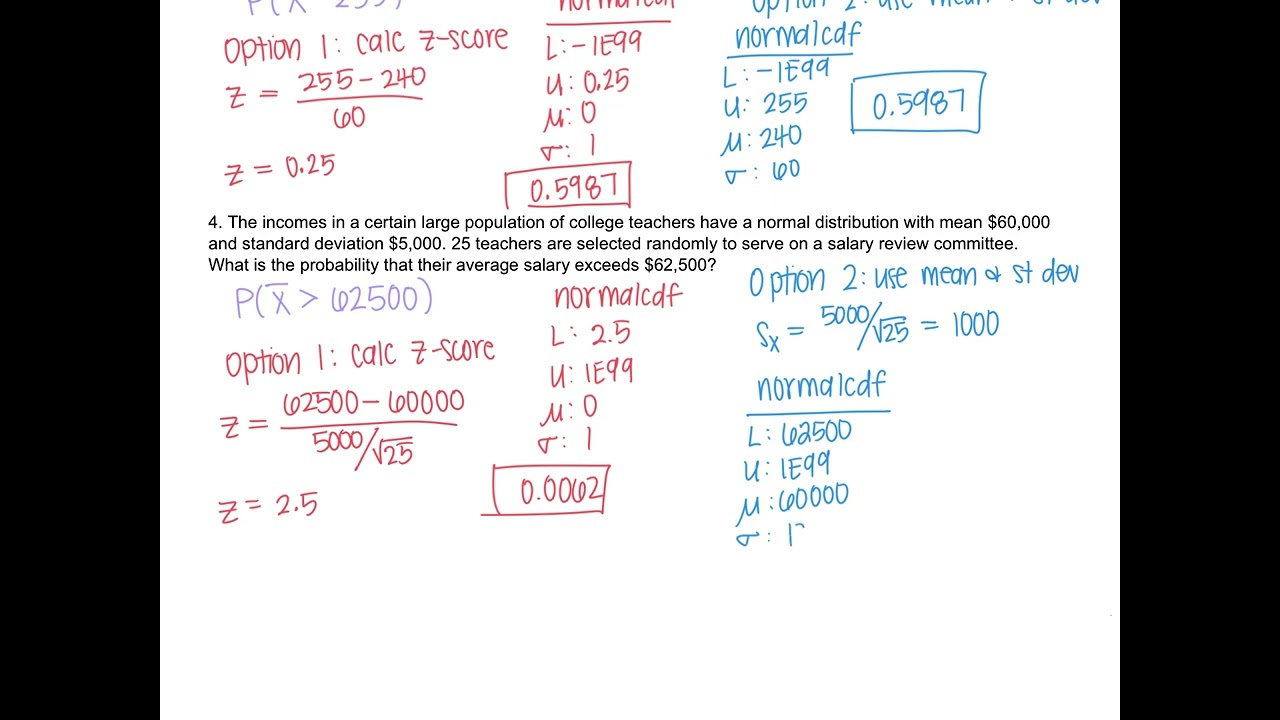 P(X 255)
Option 1: calc z-score
z = 255 - 240 / 60
z = 0.25
normalcdf
L: -1E99
U: 0.25
μ: 0
σ: 1
0.5987
Option 2: use mean & st dev
normalcdf
L: -1E99
U: 255
μ: 240
σ: 60
0.5987
4. The incomes in a certain large population of college teachers have a normal distribution with mean $60,000
and standard deviation $5,000. 25 teachers are selected randomly to serve on a salary review committee.
What is the probability that their average salary exceeds $62,500?
P(x̄ > 62500)
Option 1: calc z-score
z = 62500 - 60000 / 5000/√25
z = 2.5
normalcdf
L: 2.5
U: 1E99
μ: 0
σ: 1
0.0062
Option 2: use mean & st dev
Sx = 5000/√25 = 1000
normalcdf
L: 62500
U: 1E99
μ: 60000
σ: 1